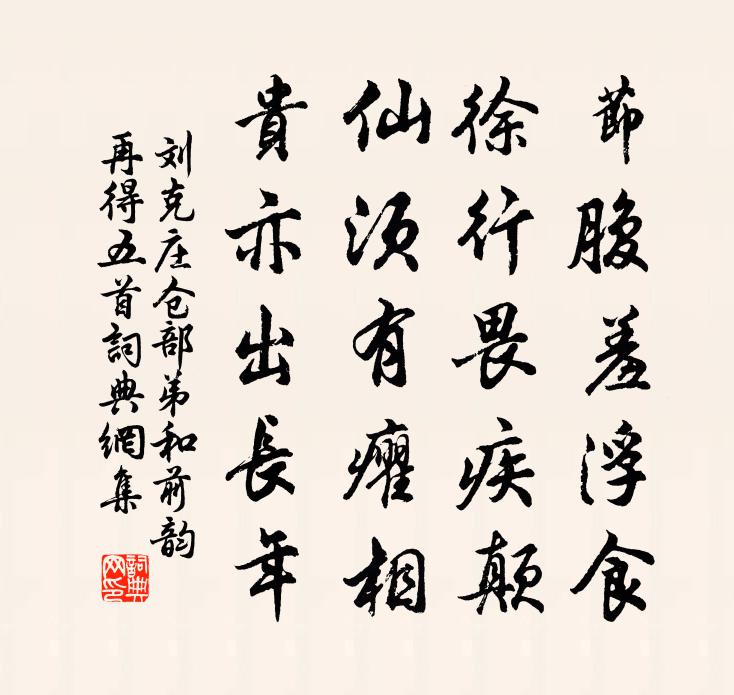 節腹羞浮食
徐行畏疾顛
仙須有癯相
貴亦出長年
刘克庄仓部弟和前韵
再得五首詞典網集
詞典网印